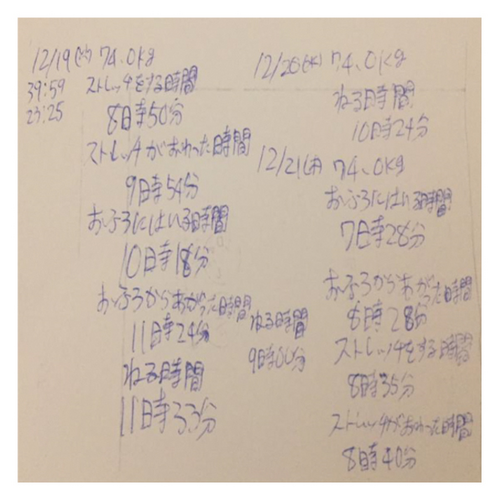 12/19(火) 74.0kg
39:59 ストレッチをする時間
23:25 8時50分
ストレッチがおわった時間
9時54分
おふろにはいる時間
10時18分
おふろからあがった時間
11時24分
ねる時間
11時33分
12/20(水) 74.0kg
ねる時間
10時24分
12/21(月) 74.0kg
おふろにはいる時間
7時28分
おふろからあがった時間
8時28分
ストレッチをする時間
8時35分
ストレッチがおわった時間
8時40分
ねる時間
9時00分